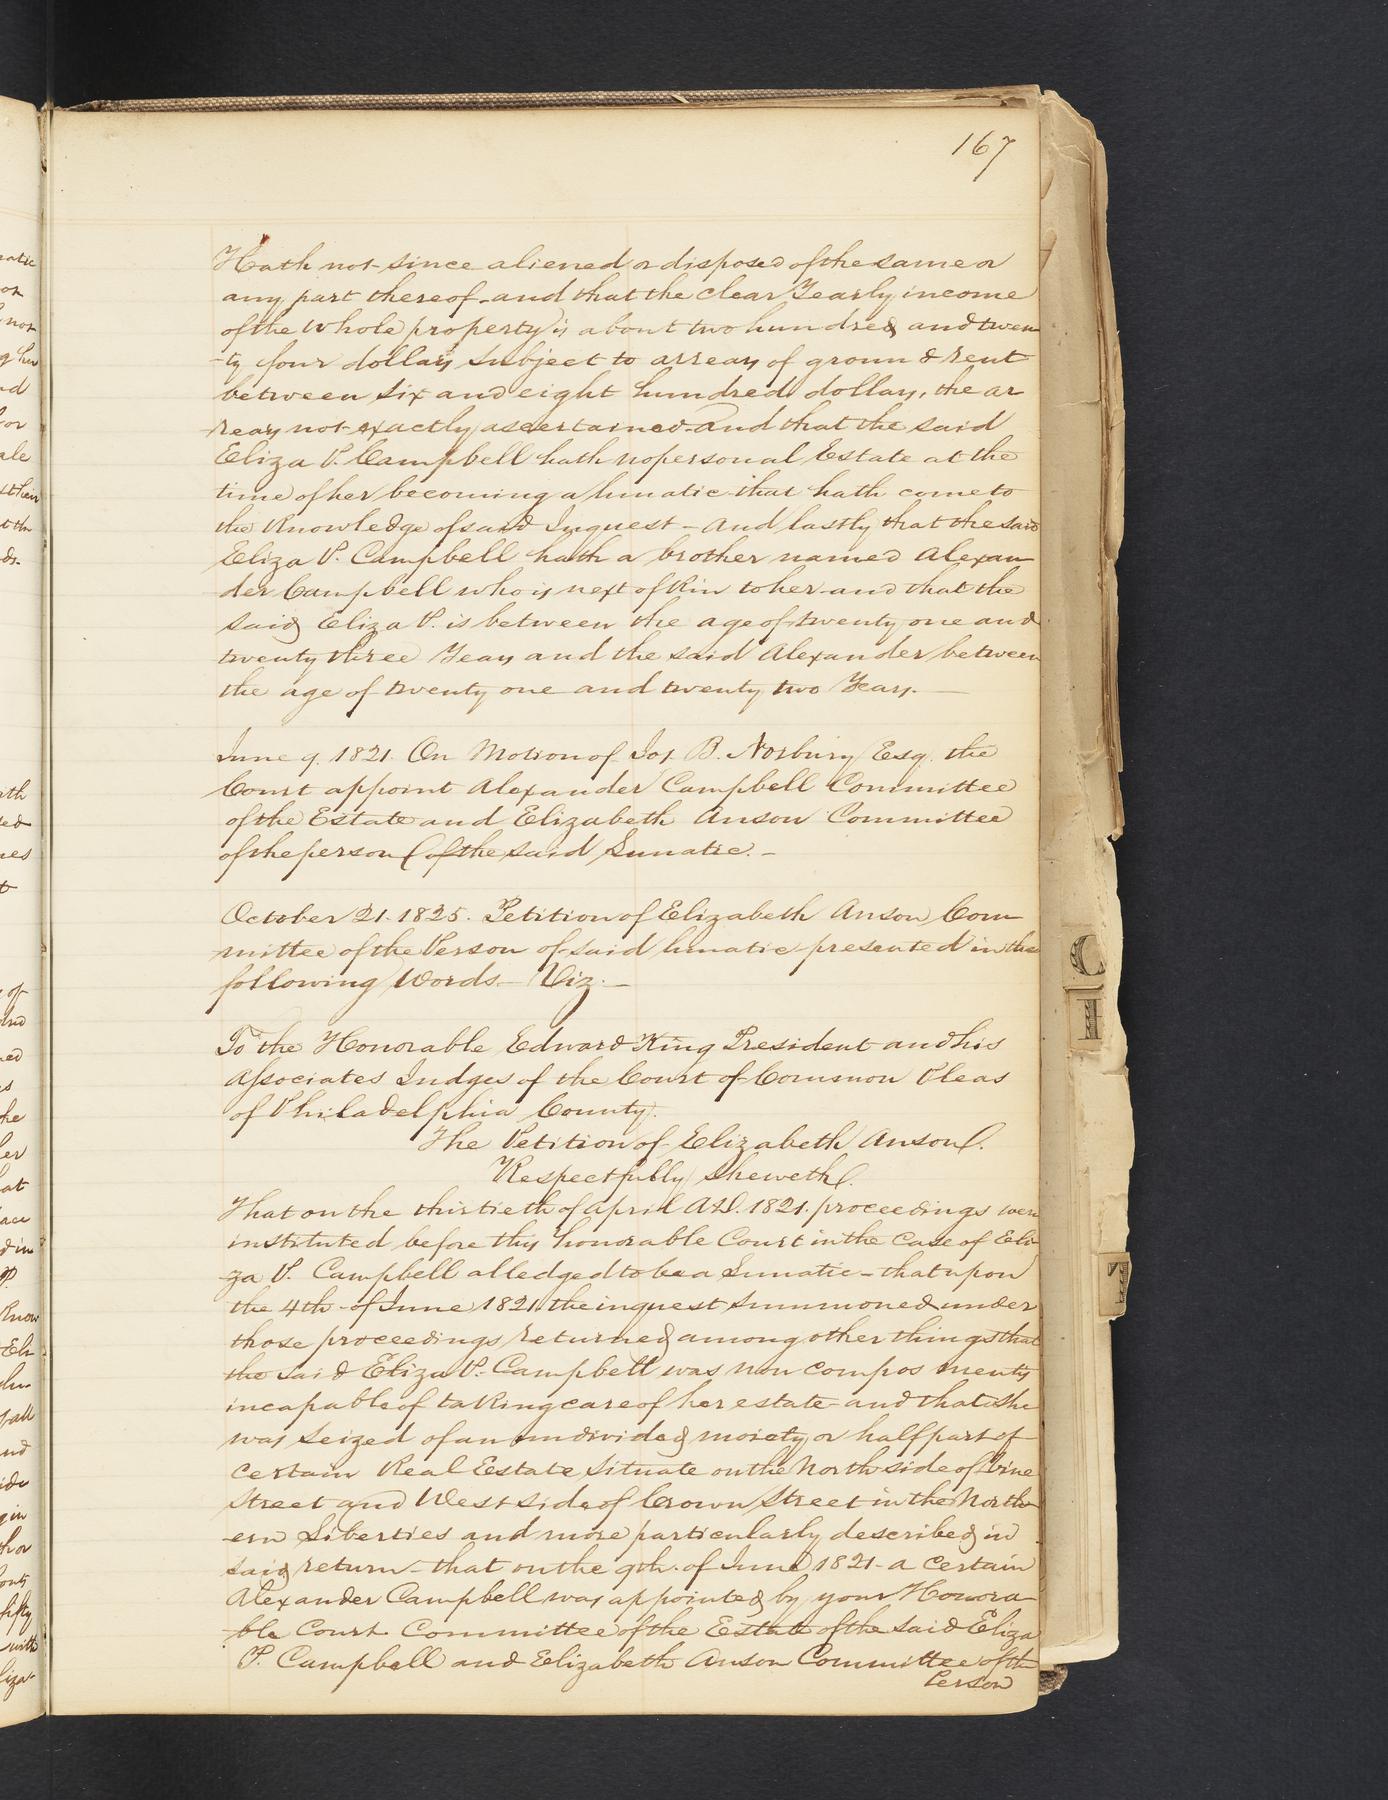 167
Hath not since aliened or disposed of the same or
any part thereof and that the clear Yearly income
of the Whole property is about two hundred and twen
-ty four dollars subject to arrears of groun d rent
between six and eight hundred dollars, the ar
rears not exactly ascertained and that the said
Eliza P. Campbell hath no personal Estate at the
time of her becoming a lunatic that hath come to
the Knowledge of said Inquest - And lastly that the said
Eliza P. Campbell hath a brother named Alexan
der Campbell who is next of Kin to her and that the
said Eliza P. is between the age of twenty one and
twenty three Years and the said Alexander between
the age of twenty one and twenty two Years. —
June 9. 1821. On Motion of Jos B. Norbury Esq. the
Court appoint Alexander Campbell Committee
of the Estate and Elizabeth Anson Committee
of the person of the said Lunatic. -
October 21. 1825. Petition of Elizabeth Anson Com
mittee of the Person of said lunatic presented in the
following Words - Viz. -
To the Honorable Edward King President and his
Associates Judges of the Court of Common Pleas
of Philadelphia County.
The Petition of Elizabeth Anson.
Respectfully Sheweth.
That on the thirtieth of April A.D. 1821. proceedings were
instituted before this honorable Court in the Case of Eli
za P. Campbell alledged to be a Lunatic - that upon
the 4th of June 1821 the inquest summoned under
those proceedings returned among other things that
the said Eliza P. Campbell was non compos mentis
incapable of taking care of her estate and that she
was seized of an undivided moiety or half part of
certain Real Estate situate on the North side of Vine
Street and West side of Crown Street in the North
ern Liberties and more particularly described in
said return - that on the 9th. of June 1821 - a certain
Alexander Campbell was appointed by your Honora
ble Court Committee of the Estate of the said Eliza
P. Campbell and Elizabeth Anson Committee of the
Person
C
I
T